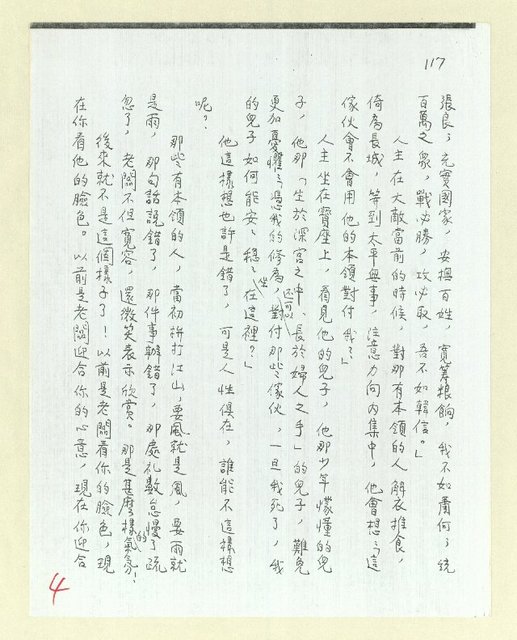 117
張良；充實國家，安撫百姓，寬籌糧餉，我不如蕭何；統
百萬之衆，戰必勝，攻必取，吾不如韓信。」
人主在大敵當前的時候，對那有本領的人解衣推食，
倚為長城，等到太平無事，注意力向內集中，他會想；這
傢伙會不會用他的本領對付我？」
人主坐在寶座上，看見他的兒子，他那少年懞懂的兒
子，他那「生於深宮之中、長於婦人之手」的兒子，難免
更加憂懼；憑我的修為，還可以對付那些傢伙，一旦我死了，我
的兒子如何能安、穩、坐在這裡？」
他這樣想也許是錯了，可是人性俱在，誰能不這樣想
呢？
那些有本領的人，當初拼打江山，要風就是風，要雨就
是雨，那句話說錯了，那件事辦錯了，那處礼數怠慢了疏
忽了，老闆不但寬容，還微笑表示欣賞。那是甚麼樣的氣氛！
後來就不是這個樣子了！以前是老闆看你的臉色，現
在你看他的臉色。以前是老闆迎合你的心意，現在你迎合
4